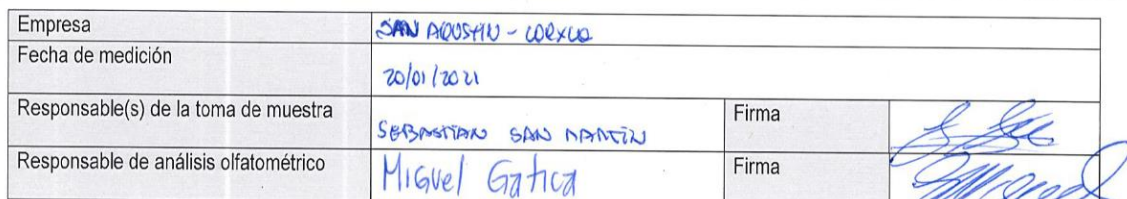 Empresa SAN AGUSTIN -
Fecha de medición 20/01/2021
Responsable(s) de la toma de muestra SEBASTIAN SAN MARTÍN Firma
Responsable de análisis olfatométrico Miguel Gatica Firma